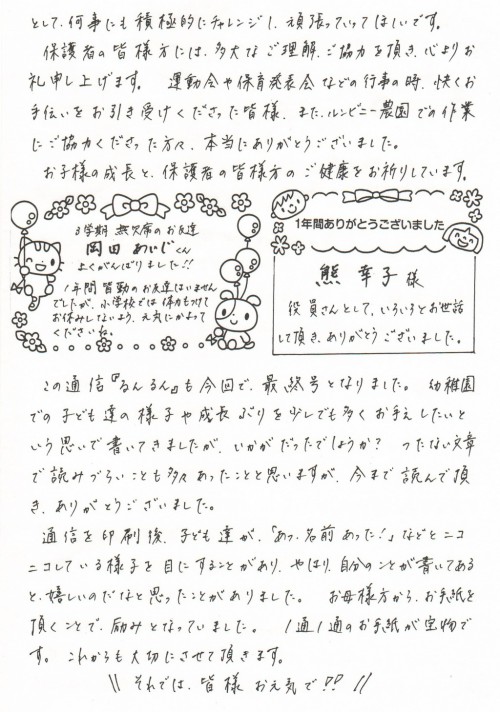 として、何事にも積極的にチャレンジし、頑張っていってほしいです。
保護者の皆様方には、多大なご理解、ご協力を頂き、心よりお
礼申し上げます。 運動会や保育発表会などの行事の時、快くお
手伝いをお引き受けくださった皆様、また、ルンビニー農園での作業
にご協力くださった方々、本当にありがとうございました。
お子様の成長と、保護者の皆様方のご健康をお祈りしています。
3学期 無欠席のお友達
岡田 あいじくん
よくがんばりました!!
1年間 皆勤のお友達はいません
でしたが、小学校では 体力もつけて
お休みしないよう、元気にかよって
くださいね。
1年間ありがとうございました
熊 幸子様
役員さんとして、いろいろとお世話
して頂き、ありがとうございました。
この通信『るんるん』も今回で、最終号となりました。 幼稚園
での子ども達の様子や成長ぶりを少しでも多くお伝えしたいと
いう思いで書いてきましたが、いかがだったでしょうか? つたない文章
で読みづらいことも多々あったことと思いますが、今まで読んで頂
き、ありがとうございました。
通信を印刷後、子ども達が、「あっ、名前あった!」などとニコ
ニコしている様子を目にすることがあり、やはり、自分のことが書いてある
と、嬉しいのだなと思ったことがありました。 お母様方から、お手紙を
頂くことで、励みとなっていました。 1通1通のお手紙が宝物で
す。 これからも大切にさせて頂きます。
\\ それでは、皆様 お元気で!! //